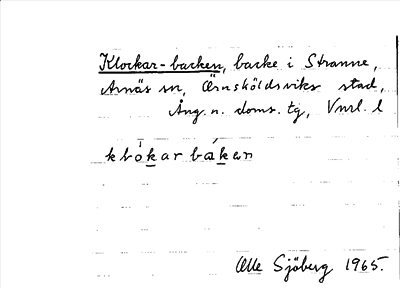 Klockar-backen, backe i Stranne,
Arnäs sn, Örnsköldsviks stad,
Ång. n. doms. tg, Vnrl. l
klòkarbáken
Olle Sjöberg 1965.